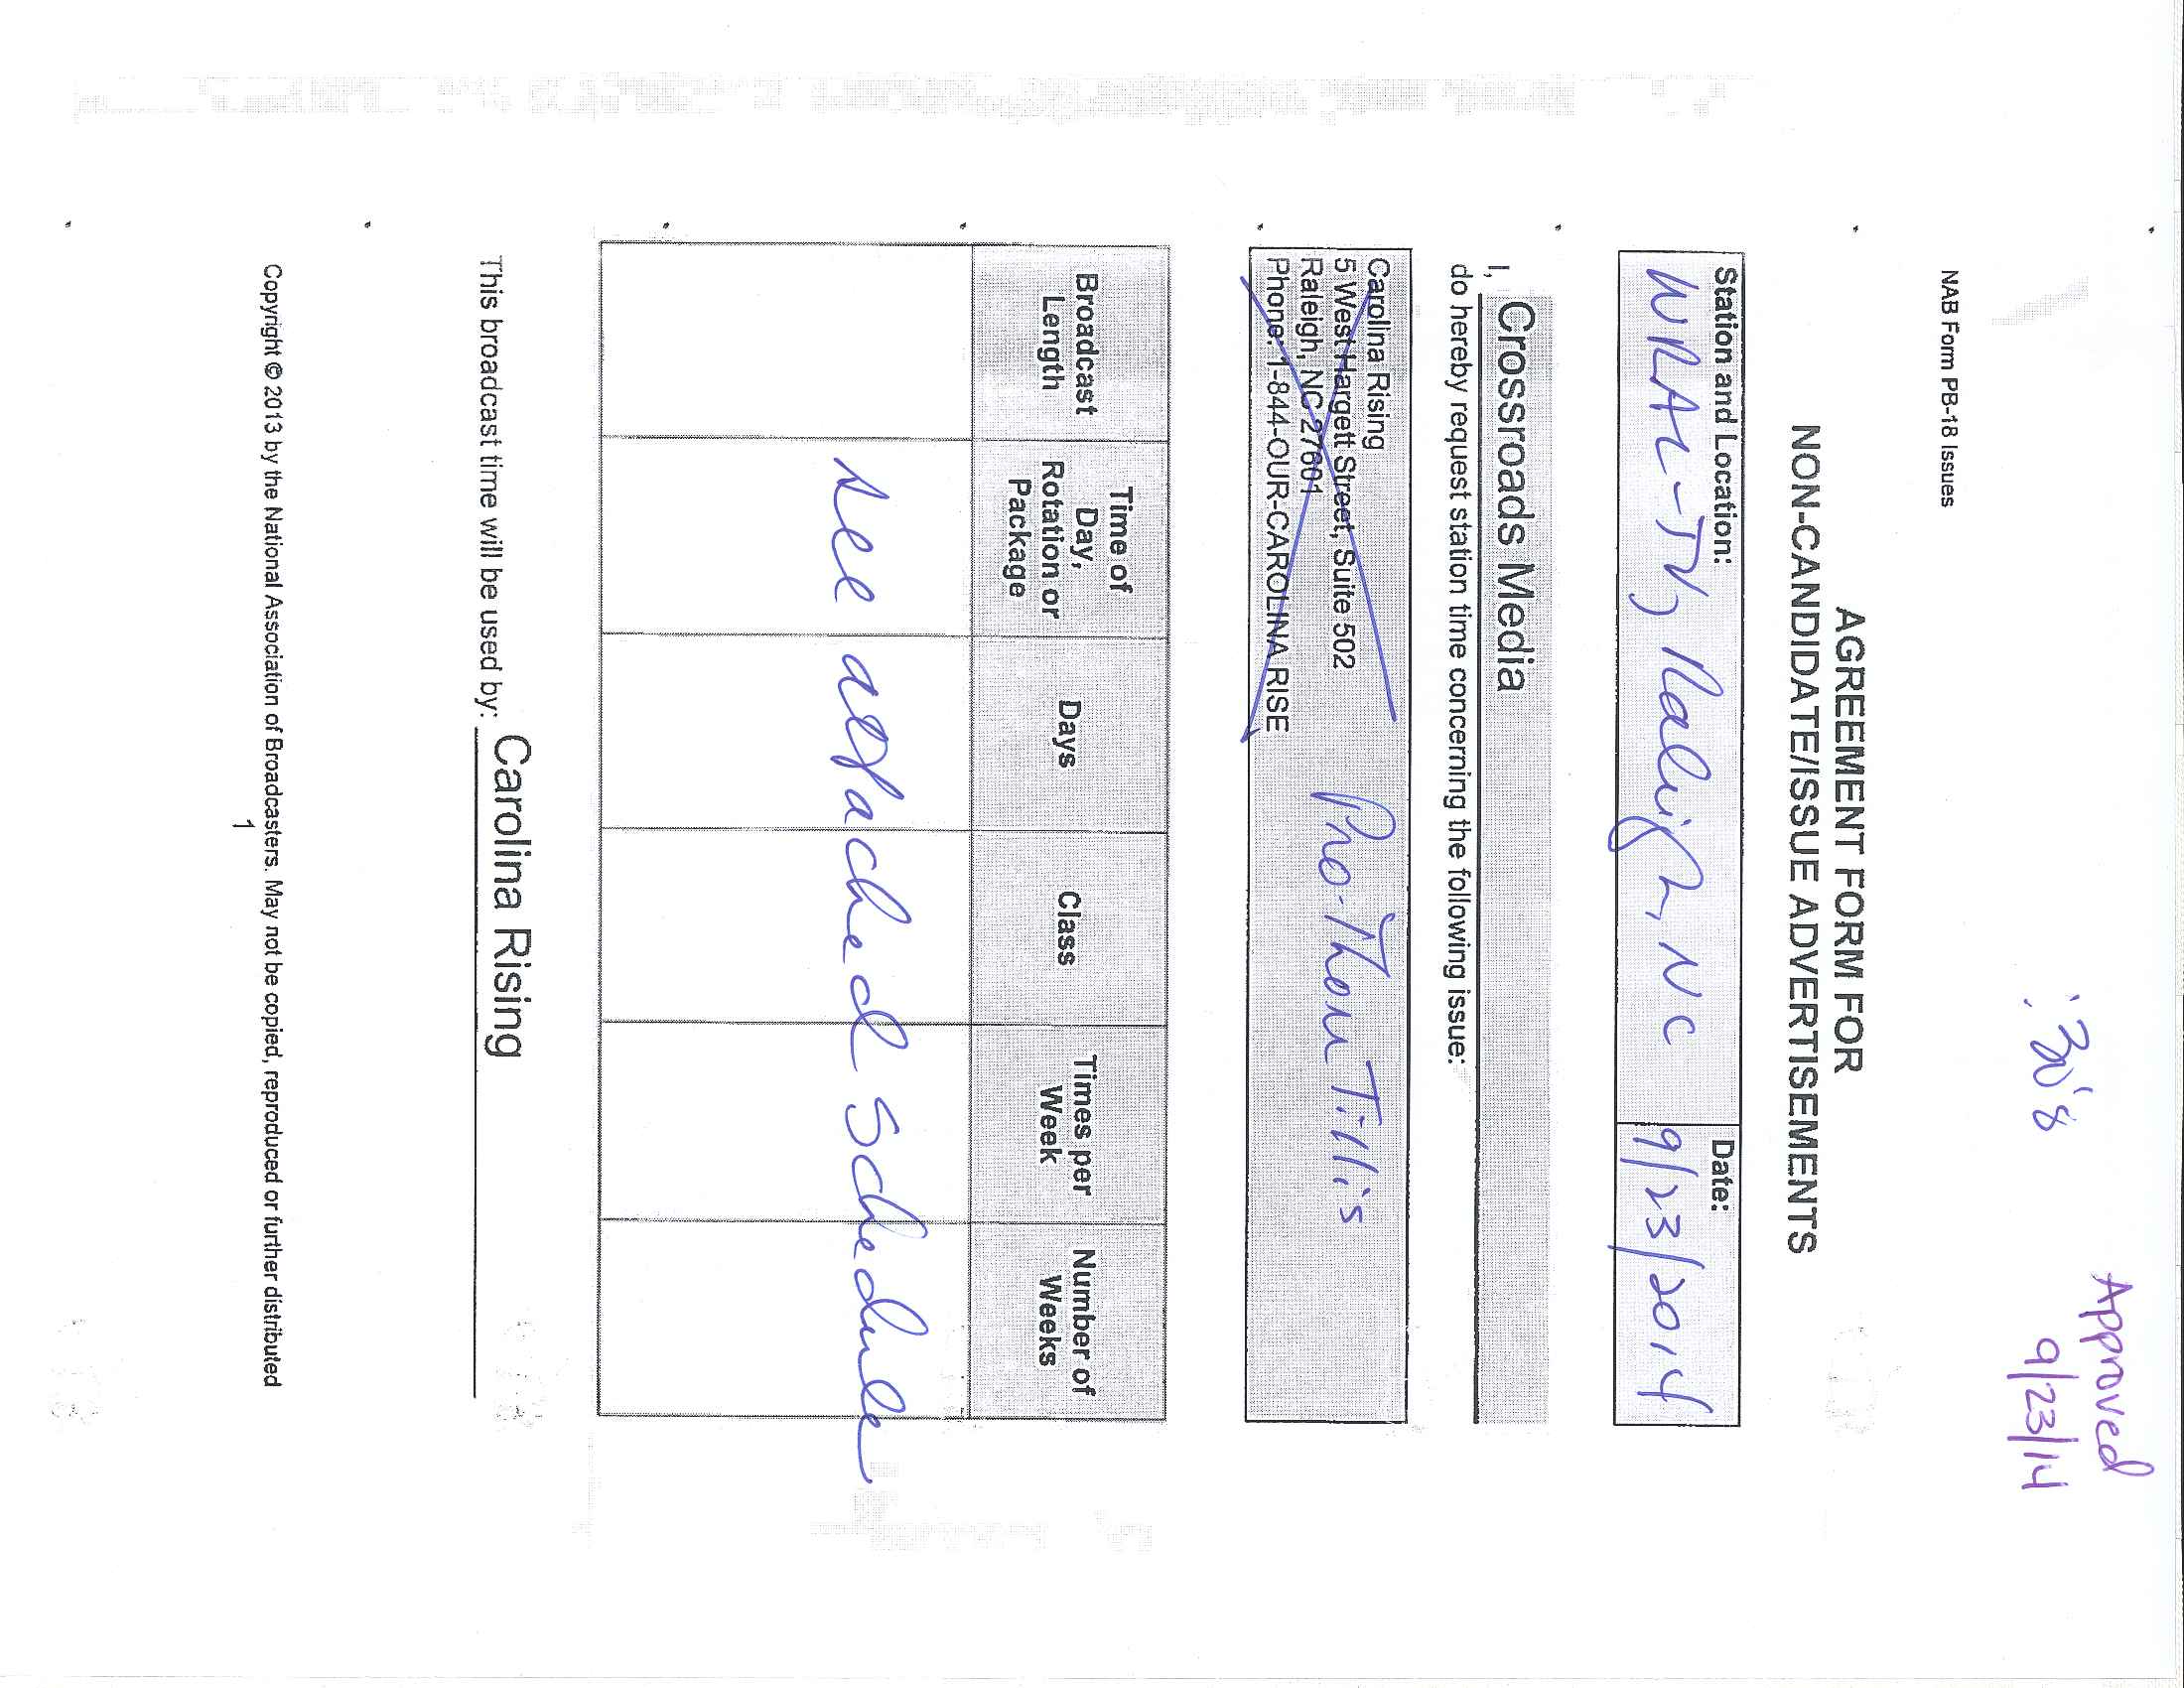 Approved
9/23/14
:30's
NAB Form PB-18 Issues
AGREEMENT FORM FOR
NON-CANDIDATE/ISSUE ADVERTISEMENTS
Station and Location:
Date:
WRAL-TV, Raleigh, NC
9/23/2014
I, Crossroads Media
do hereby request station time concerning the following issue:
Carolina Rising
5 West Hargett Street, Suite 502
Raleigh, NC 27601
Phone: 1-844-OUR-CAROLINA RISE
Pro-Thom Tillis
Broadcast Length
Time of Day, Rotation or Package
Days
Class
Times per Week
Number of Weeks
see attached schedule
This broadcast time will be used by: Carolina Rising
Copyright © 2013 by the National Association of Broadcasters. May not be copied, reproduced or further distributed
1